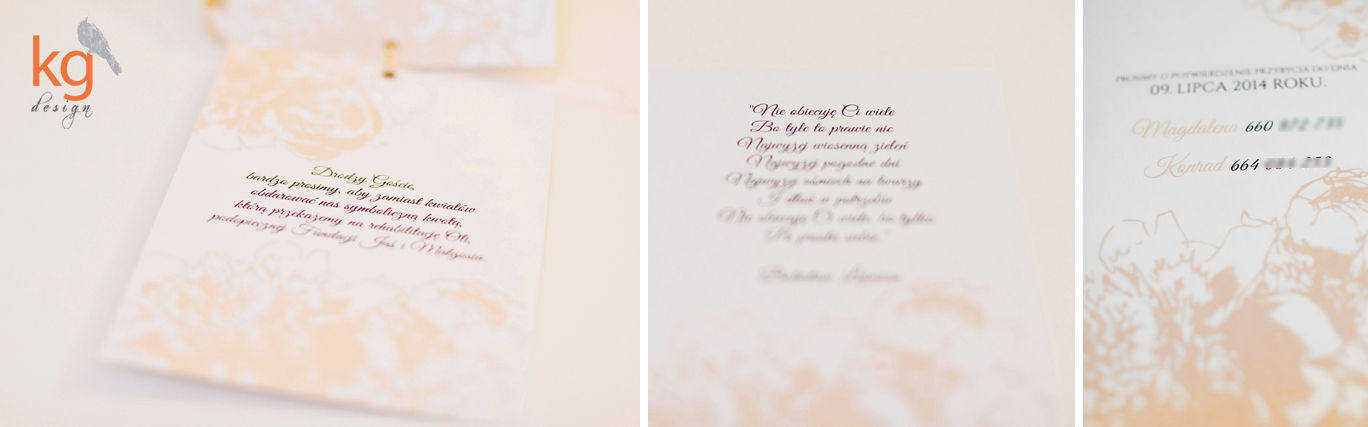 kg
design
Drodzy Goście,
bardzo prosimy, aby zamiast kwiatów
obdarować nas symboliczną kwotą,
którą przekażemy na rehabilitację Oli,
podopiecznej Fundacji Jaś i Małgosia.
"Nie obiecuję Ci wiele
Bo tyle to prawie nic
Najwyżej wiosenną zieleń
Najwyżej pogodne dni
Najwyżej uśmiech na twarzy
I dłoń w potrzebie
Nie obiecuję Ci wiele, bo tylko
PROSIMY O POTWIERDZENIE PRZYBYCIA DO DNIA
09. LIPCA 2014 ROKU.
Magdalena 660
Konrad 664